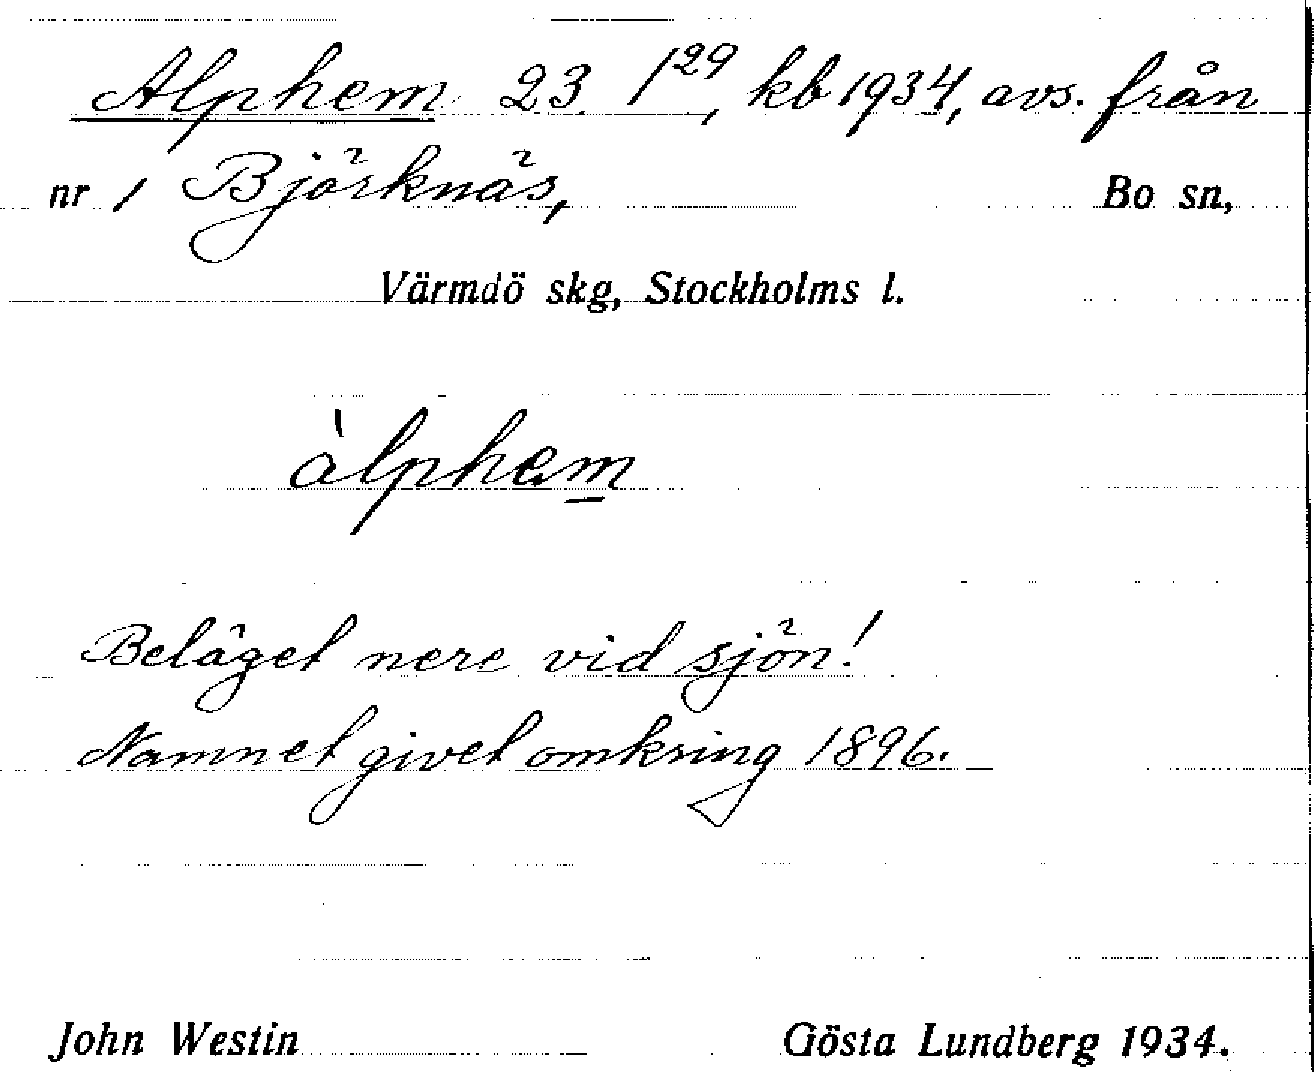 Alphem 23 1²⁹, kb 1934, avs. från
nr 1 Björknäs, Bo sn,
Värmdö skg, Stockholms l.
àlphem
Beläget nere vid sjön!
Namnet givet omkring 1896.
John Westin Gösta Lundberg 1934.